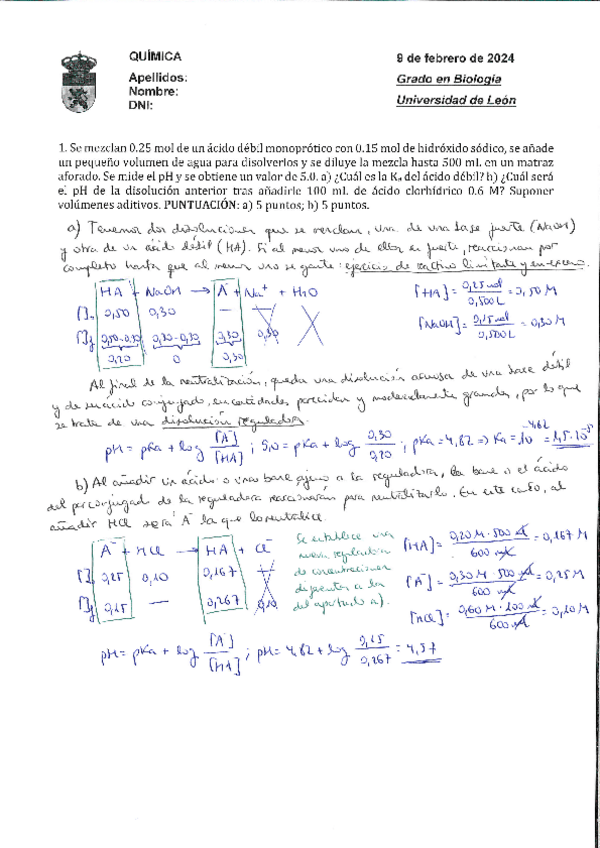 QUÍMICA
9 de febrero de 2024
Apellidos:
Grado en Biología
Nombre:
Universidad de León
DNI:
1. Se mezclan 0.25 mol de un ácido débil monoprótico con 0.15 mol de hidróxido sódico, se añade
un pequeño volumen de agua para disolverlos y se diluye la mezcla hasta 500 mL en un matraz
aforado. Se mide el pH y se obtiene un valor de 5.0. a) ¿Cuál es la Kₐ del ácido débil? b) ¿Cuál será
el pH de la disolución anterior tras añadirle 100 mL de ácido clorhídrico 0.6 M? Suponer
volúmenes aditivos. PUNTUACIÓN: a) 5 puntos; b) 5 puntos.
a) Tenemos dos disoluciones que se mezclan, una de una base fuerte (NaOH)
y otra de un ácido débil (HA). Si al menos uno de ellos es fuerte, reaccionan por
completo hasta que al menos uno se gaste: ejercicio de reactivo limitante y en exceso.
HA + NaOH → A⁻ + Na⁺ + H₂O
[HA] = 0,25 mol / 0,500 L = 0,50 M
[]₀ 0,50 0,30 —
[NaOH] = 0,15 mol / 0,500 L = 0,30 M
[]f 0,50-0,30 0,30-0,30 0,30 0,30
0,20 0 0,30
Al final de la neutralización, queda una disolución acuosa de una base débil
y de su ácido conjugado, en cantidades parecidas y moderadamente grandes, por lo que
se trata de una disolución reguladora.
pH = pKa + log [A⁻]/[HA] ; 5,0 = pKa + log 0,30/0,20 ; pKa = 4,82 => Ka = 10^-4,82 = 1,5·10⁻⁵
b) Al añadir un ácido o una base ajeno a la reguladora, la base o el ácido
del par conjugado de la reguladora reaccionarán para neutralizarlo. En este caso, al
añadir HCl será A⁻ la que lo neutralice.
A⁻ + HCl → HA + Cl⁻
Se establece una
nueva reguladora
de concentraciones
diferentes a las
del apartado a).
[HA] = 0,20 M · 500 mL / 600 mL = 0,167 M
[]₀ 0,25 0,10 0,167
[A⁻] = 0,30 M · 500 mL / 600 mL = 0,25 M
[]f 0,15 — 0,267 0,10
[HCl] = 0,60 M · 100 mL / 600 mL = 0,10 M
pH = pKa + log [A⁻]/[HA] ; pH = 4,82 + log 0,15/0,267 = 4,57